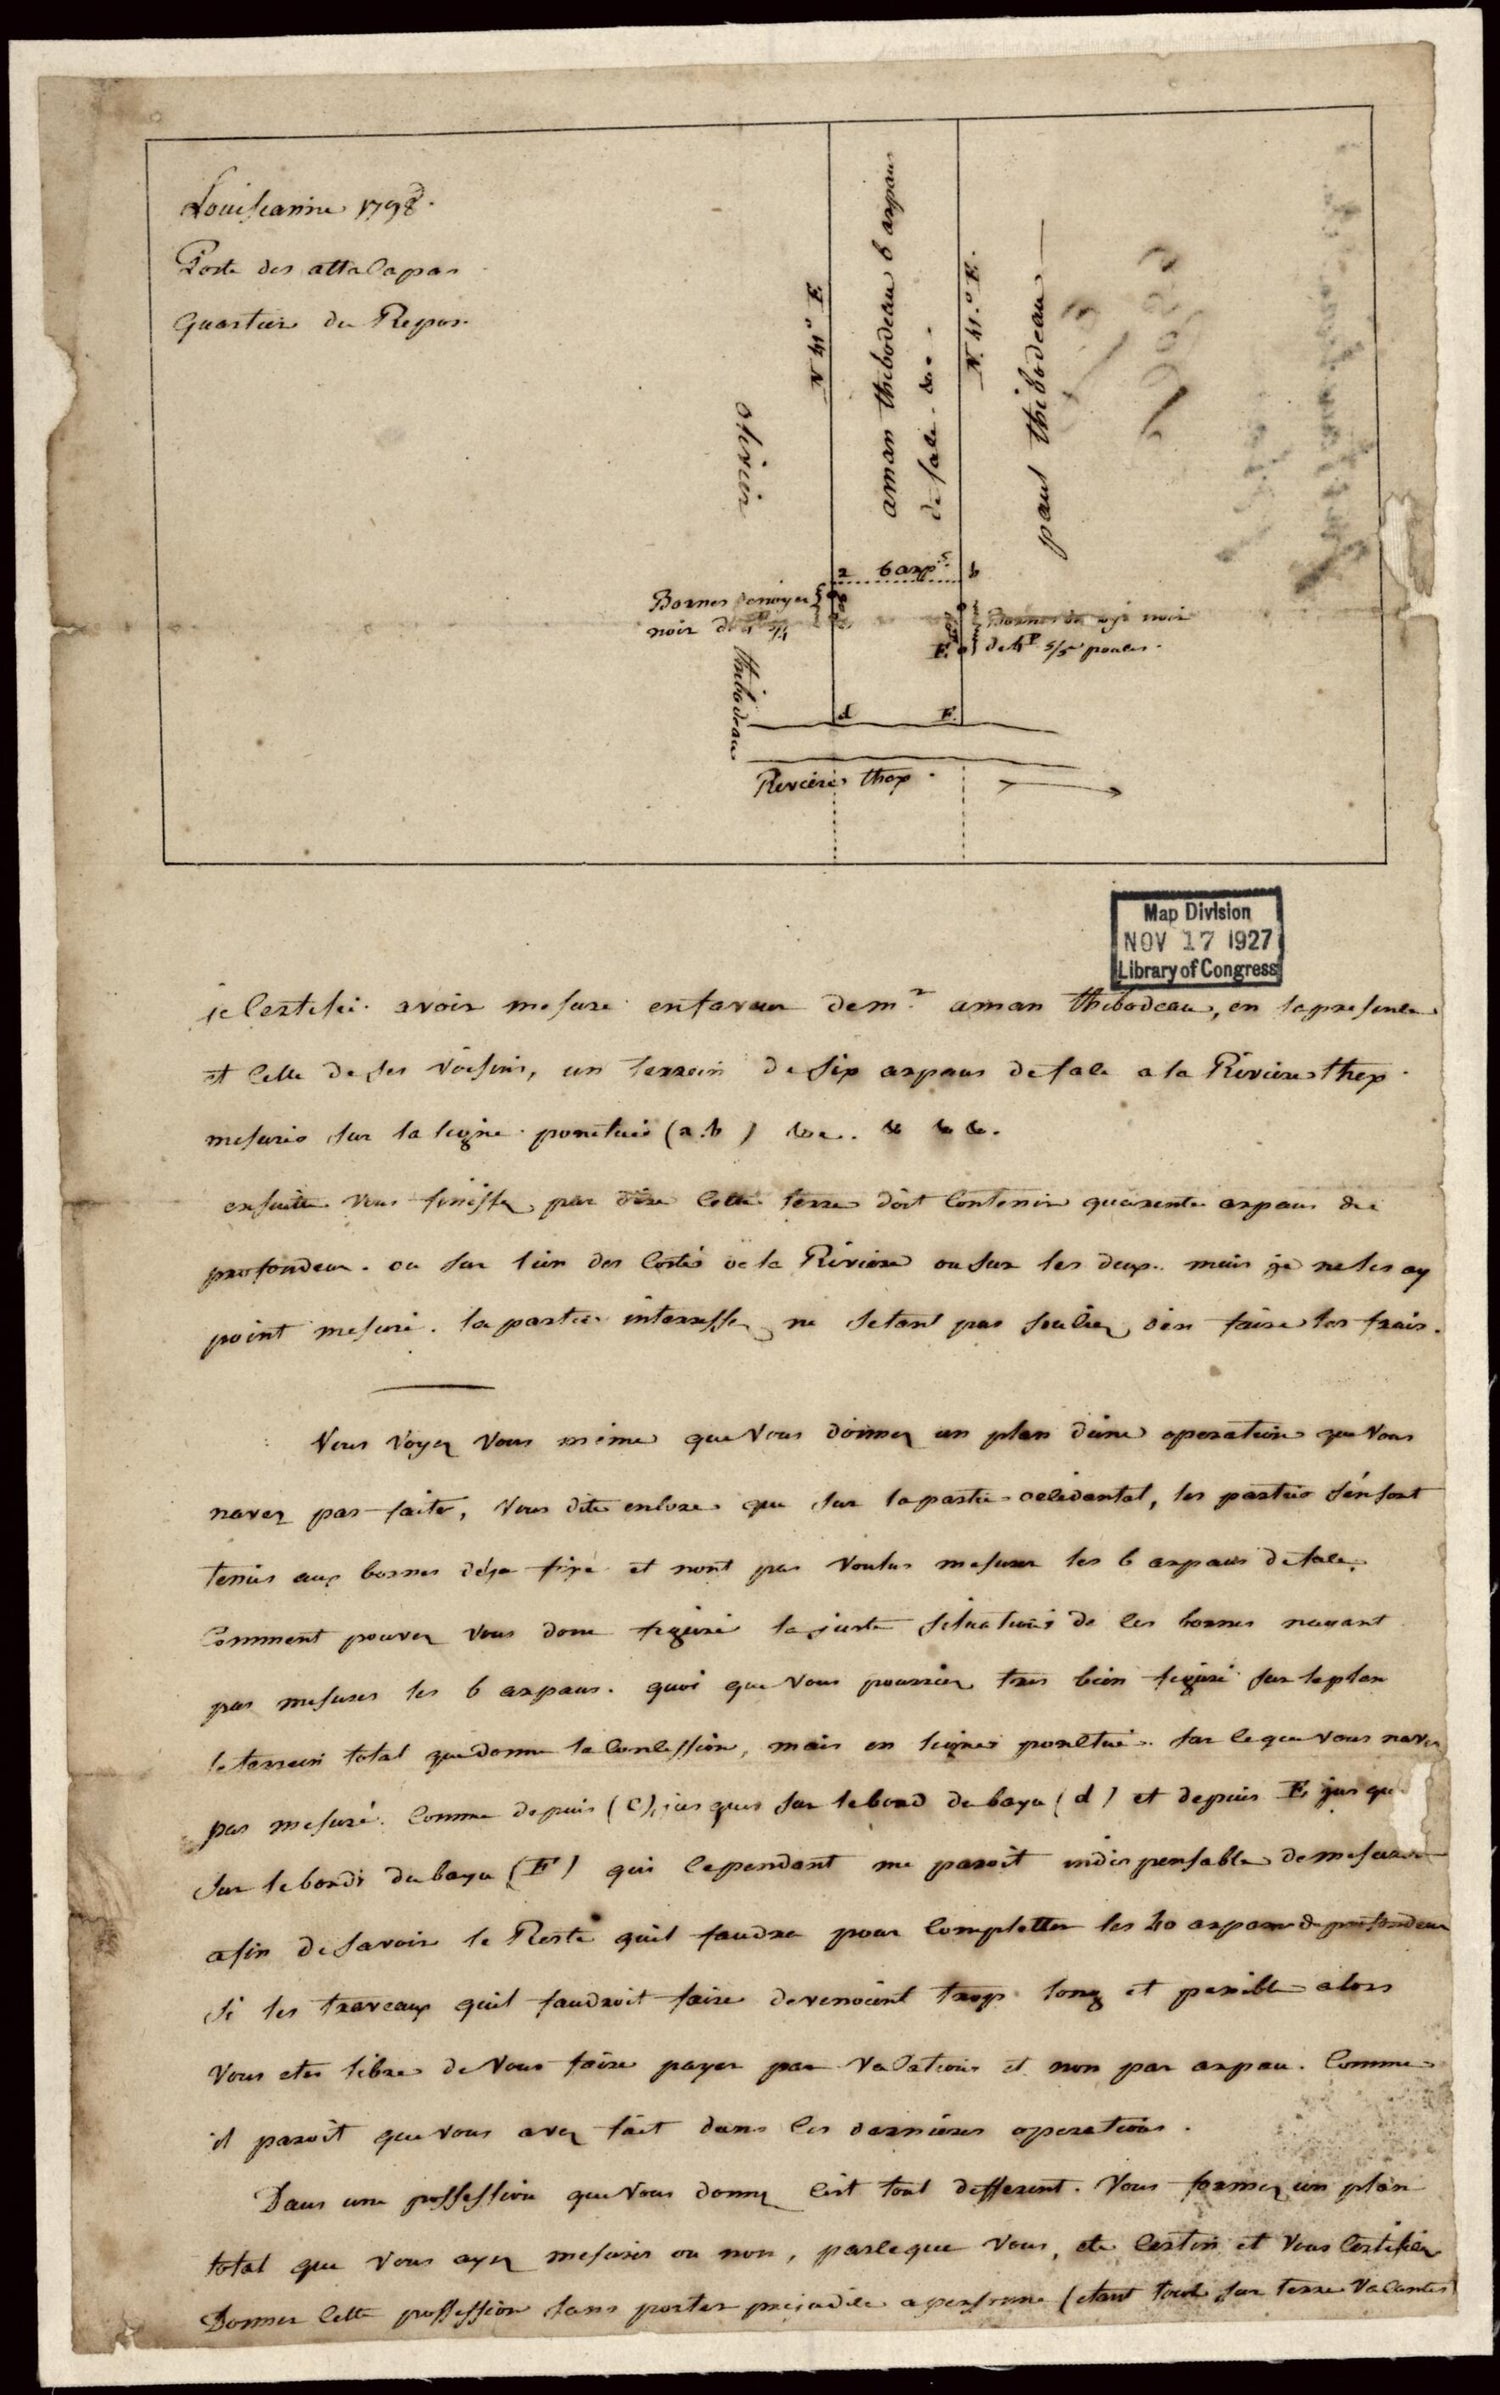 Louiseanne 1798.
Poste des attacapas
Quartier du Repos.
N 41° E.
aman thibodeau 6 arpans
de face. &c.
N. 41.° E.
paul thibodeau
olivier
thibodeau
a 6 arps. b
Bornes de noyer
noir de
Bornes de noir
de 4P 5/5 pouces.
E.
d F.
Rivière thex.
Map Division
NOV 17 1927
Library of Congress
je Certifie avoir mesure enfaveur de mr aman thibodeau, en la presence
et Celle de ses voisins, un terrein de six arpans de face a la Riviere thex.
mesurés sur la ligne ponctuée (a.b) &c. & & &.
ensuitte vous finissez par dire Cette terre doit Contenir quarente arpans de
profondeur. ou sur l'un des Costés de la Riviere ou sur les deux. mais je ne les ay
point mesuré. la partie interressée ne setant pas souciez d'en faire les frais.
Vous Voyez Vous même que Vous donnez un plan d'une operation que Vous
navez pas faite, Vous dite encore que sur la partie occidental, les parties s'en sont
tenus aux bornes deja fixé et nont pas Voulus mesurer les 6 arpans de face.
Comment pouvez Vous donc figuré la juste situation de ces bornes nayant
pas mesurer les 6 arpans. quoi que Vous pourriez tres bien figuré sur le plan
le terrein total que donne la Concession, mais en lignes ponctué sur ce que Vous navez
pas mesuré. Comme depuis (C) jusques sur le bord du bayu (d) et depuis E jusqu
sur le bords du bayu (F) qui Cependant me paroit indispensable de mesurer
afin de savoir le Reste quil faudra pour Completter les 40 arpans de profondeur
si les traveaux quil faudroit faire devenoient trop long et penible alors
Vous etes libre de Vous faire payer par Vacations et non par arpan. Comme
il paroit que Vous avez fait dans les dernieres operations.
Dans une possession que Vous donnez C'est tout different. Vous formez un plan
total que Vous ayez mesurer ou non, parceque Vous ete Certin et Vous Certifiez
Donner Cette possession sans porter prejudice a personne (etant tout sur terre Vacante)